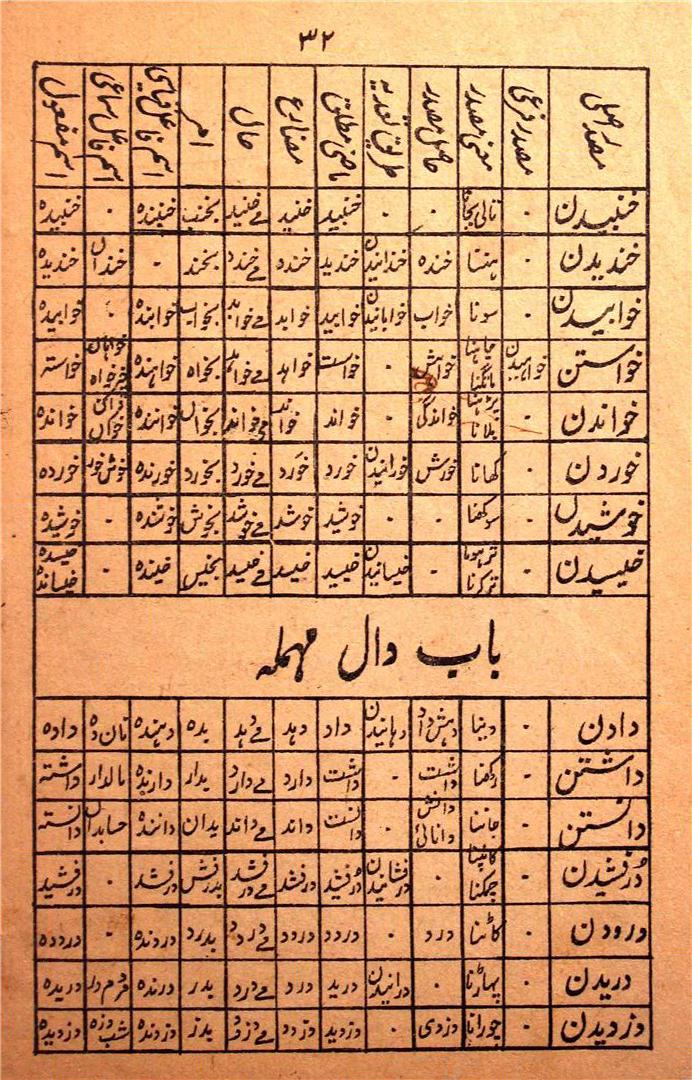 ۳۲
مصدر اصلی مصدر فرعی معنی مصدر حاصل مصدر طریق تعدیہ ماضی مطلق مضارع حال امر اسم فاعل قیاسی اسم فاعل سماعی اسم مفعول
خنبیدن ۰ تالی بجانا ۰ ۰ خنبید خنبد بخنب خنبندہ ۰ خنبیدہ
خندیدن ۰ ہنسنا خندہ خندانیدن خندید خندد مے خندد بخند ۰ خنداں خندیدہ
خوابیدن ۰ سونا خواب خوابانیدن خوابید خوابد مے خوابد بخواب خوابندہ ۰ خوابیدہ
خواستن خواہیدن چاہنا مانگنا خواہش ۰ خواست خواہد مے خواہد بخواہ خواہندہ خواہاں خیرخواہ خواستہ
خواندن ۰ پڑہنا بلانا خواندگی ۰ خواند خواند مے خواند بخواں خوانندہ خواں خواندہ
خوردن ۰ کھانا خورش خورانیدن خورد خورد مے خورد بخورد خورندہ خوش خور خوردہ
خوشیدن ۰ سوکھنا ۰ ۰ خوشید خوشد مے خوشد بخوش خوشندہ ۰ خوشیدہ
خیسیدن ۰ تر ہونا تر کرنا ۰ خیسانیدن خیسید خیسد مے خیسد بخیس خیسندہ ۰ خیسیدہ خیساندہ
باب دال مہملہ
دادن ۰ دینا دہش داد دہانیدن داد دہد مے دہد بدہ دہندہ نان دہ دادہ
داشتن ۰ رکھنا داشت ۰ داشت دارد مے دارد بدار دارندہ مالدار داشتہ
دانستن ۰ جاننا دانش دانائی ۰ دانست داند مے داند بدان دانندہ حسابداں دانستہ
درفشیدن ۰ کانپنا چمکنا ۰ درفشانیدن درفشید درفشد مے درفشد بدرفش درفشد ۰ درفشید
درودن ۰ کاٹنا درو ۰ درود درود مے درود بدرو دروندہ ۰ درودہ
دریدن ۰ پہاڑنا ۰ درانیدن درید درد مے درد بدر درندہ مردم در دریدہ
دزدیدن ۰ چورانا دزدی ۰ دزدید دزدد مے دزدد بدزد دزدندہ شب دزدہ دزدیدہ